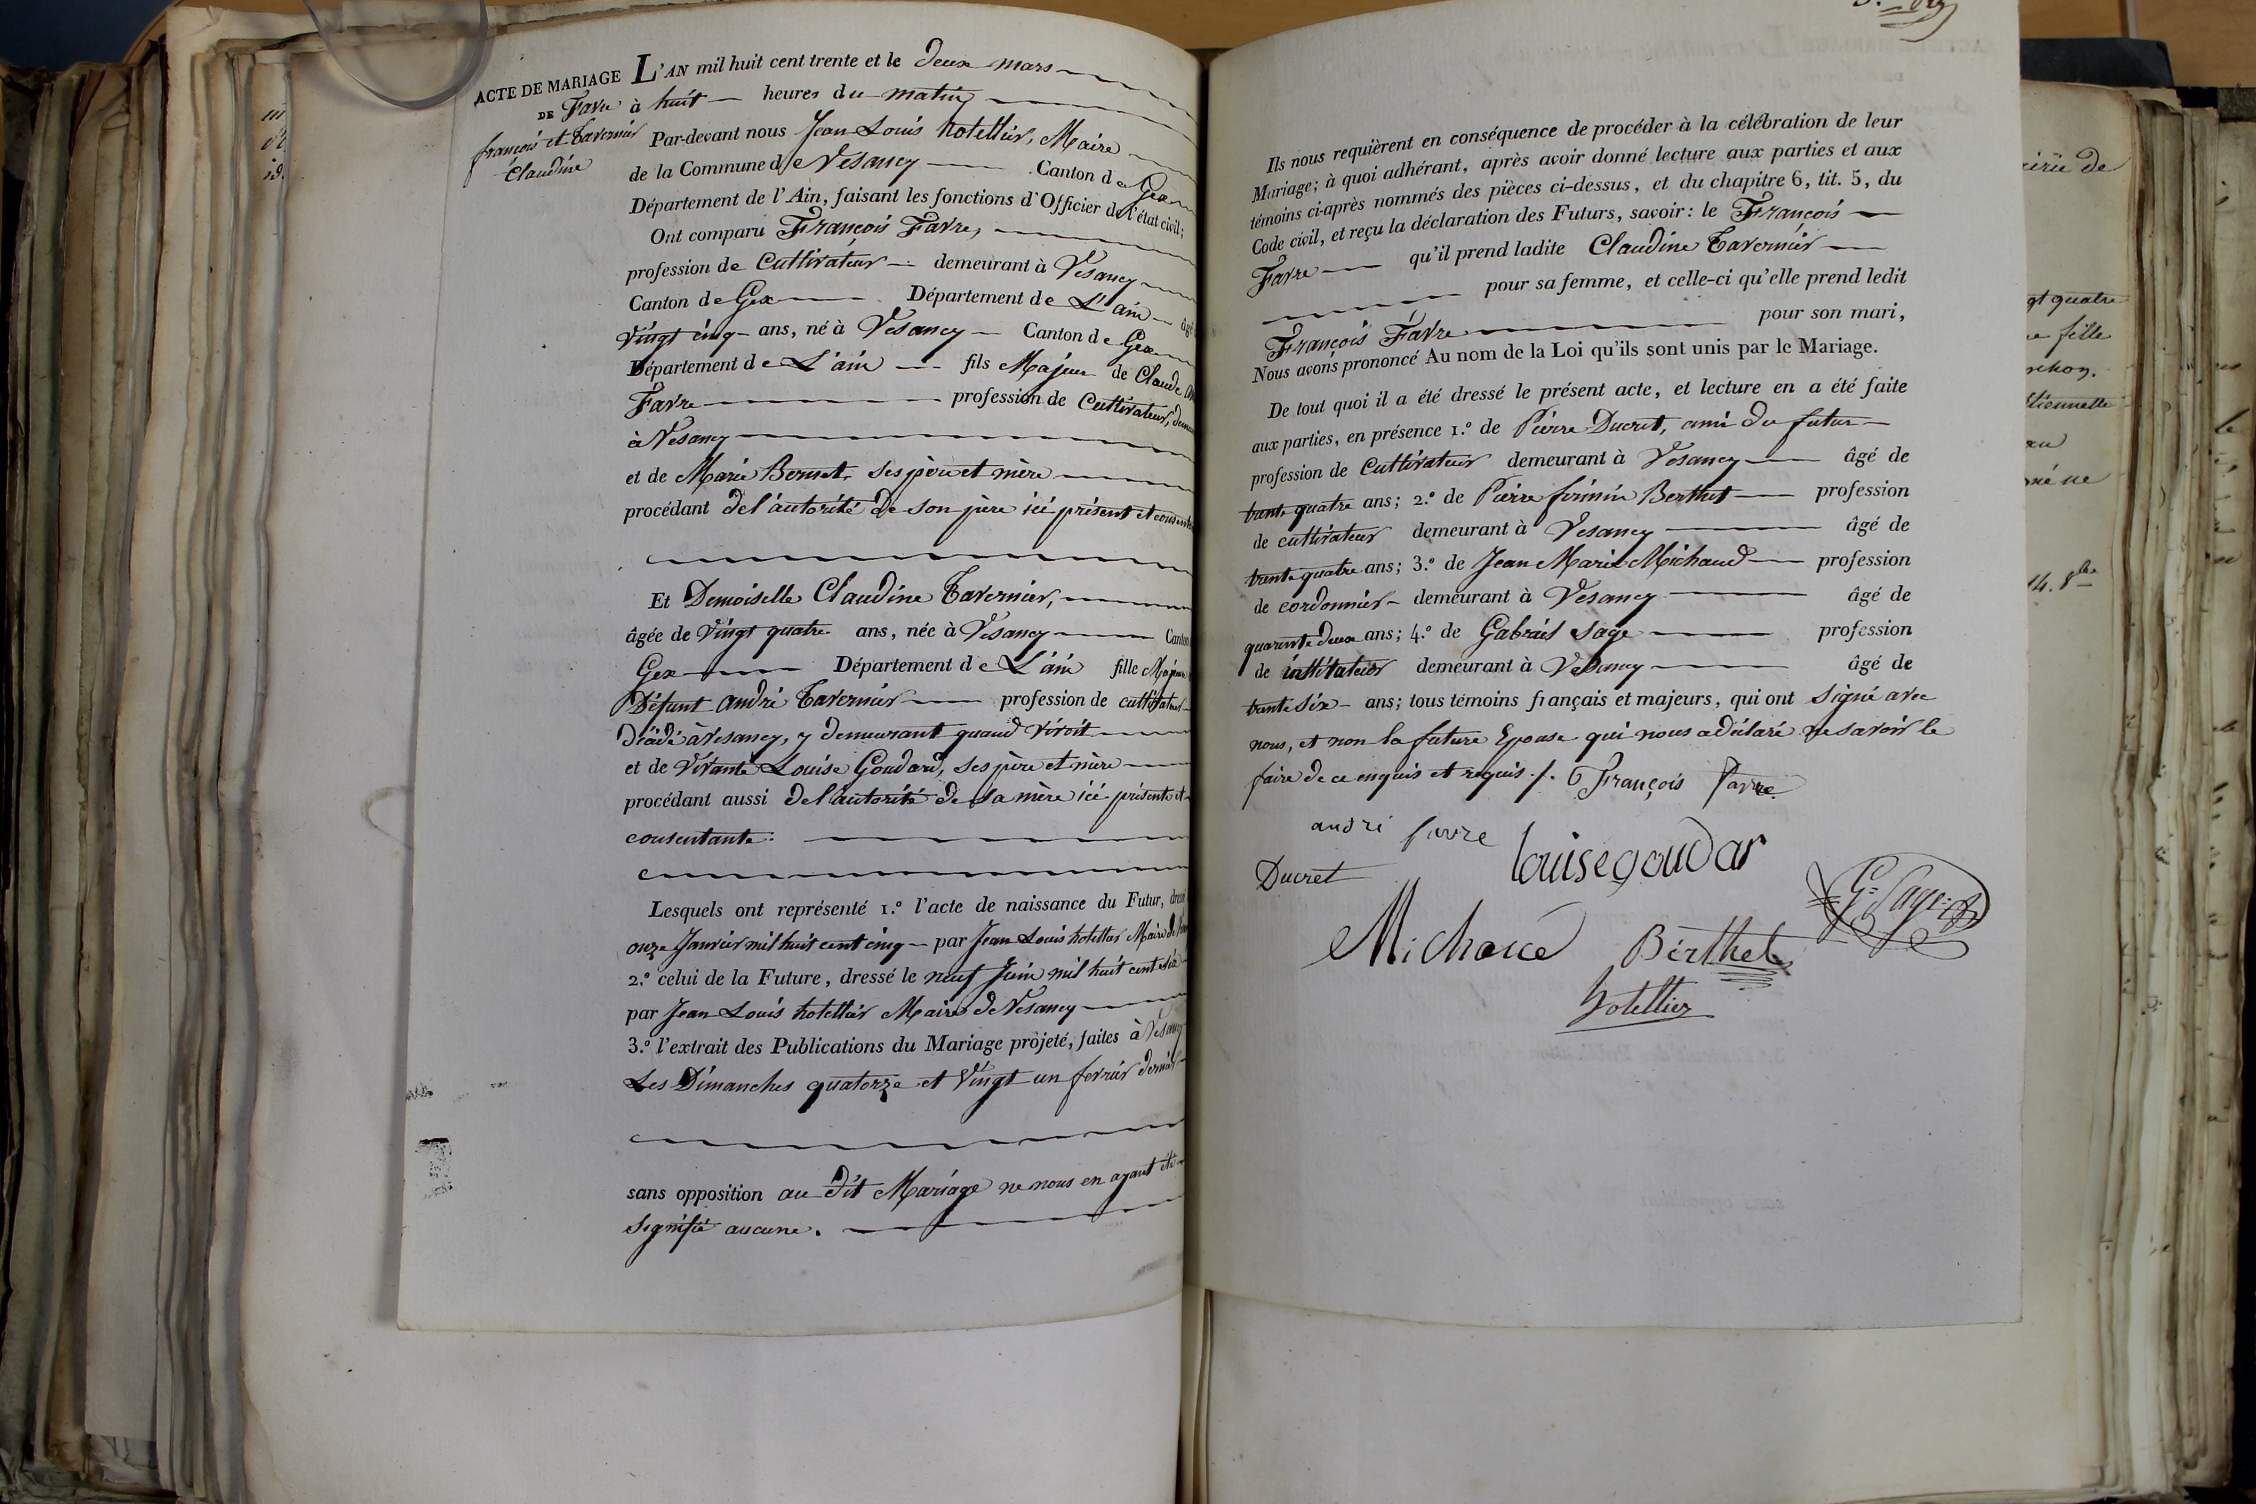 ACTE DE MARIAGE
DE Favre
françois et Tavernier
Claudine
L'AN mil huit cent trente et le deux mars
à huit heures du matin
Par-devant nous Jean Louis hotellier, Maire
de la Commune de Vesancy Canton de Gex
Département de l'Ain, faisant les fonctions d'Officier de l'état civil;
Ont comparu François Favre,
profession de Cultivateur demeurant à Vesancy
Canton de Gex Département de L'ain âgé
vingt cinq ans, né à Vesancy Canton de Gex
Département de L'ain fils Majeur de Claude
Favre profession de Cultivateur,
à Vesancy
et de Marie Bernet, ses père et mère
procédant de l'autorité de son père ici présent et
Et Demoiselle Claudine Tavernier,
âgée de vingt quatre ans, née à Vesancy Canton
Gex Département de L'ain fille Majeure
Défunt andré Tavernier profession de cultivateur
décédé à Vesancy, y demeurant quand vivoit
et de vivante Louise Goudard, ses père et mère
procédant aussi de l'autorité de sa mère ici présente et
consentante.
Lesquels ont représenté 1.º l'acte de naissance du Futur, dressé
onze Janvier mil huit cent cinq par Jean Louis hotellier Maire de
2.º celui de la Future, dressé le neuf Juin mil huit cent six
par Jean Louis hotellier Maire de Vesancy
3.º l'extrait des Publications du Mariage projeté, faites à Vesancy
Les Dimanches quatorze et vingt un fevrier dernier
sans opposition au dit Mariage ne nous en ayant été
signifié aucune.
Ils nous requièrent en conséquence de procéder à la célébration de leur
Mariage; à quoi adhérant, après avoir donné lecture aux parties et aux
témoins ci-après nommés des pièces ci-dessus, et du chapitre 6, tit. 5, du
Code civil, et reçu la déclaration des Futurs, savoir: le François
Favre qu'il prend ladite Claudine Tavernier
pour sa femme, et celle-ci qu'elle prend ledit
François Favre pour son mari,
Nous avons prononcé Au nom de la Loi qu'ils sont unis par le Mariage.
De tout quoi il a été dressé le présent acte, et lecture en a été faite
aux parties, en présence 1.º de Pierre Ducret, ami du futur
profession de Cultivateur demeurant à Vesancy âgé de
trente quatre ans; 2.º de Pierre firmin Berthet profession
de cultivateur demeurant à Vesancy âgé de
trente quatre ans; 3.º de Jean Marie Michaud profession
de cordonnier demeurant à Vesancy âgé de
quarante deux ans; 4.º de Gabriel Sage profession
de instituteur demeurant à Vesancy âgé de
trente six ans; tous témoins français et majeurs, qui ont signé avec
nous, et non la future Epouse qui nous a déclaré ne savoir le
faire de ce enquis et requis ./. François favre
andré favre
louise goudar
Ducret
G. Sage
Michoud
Berthet
hotellier